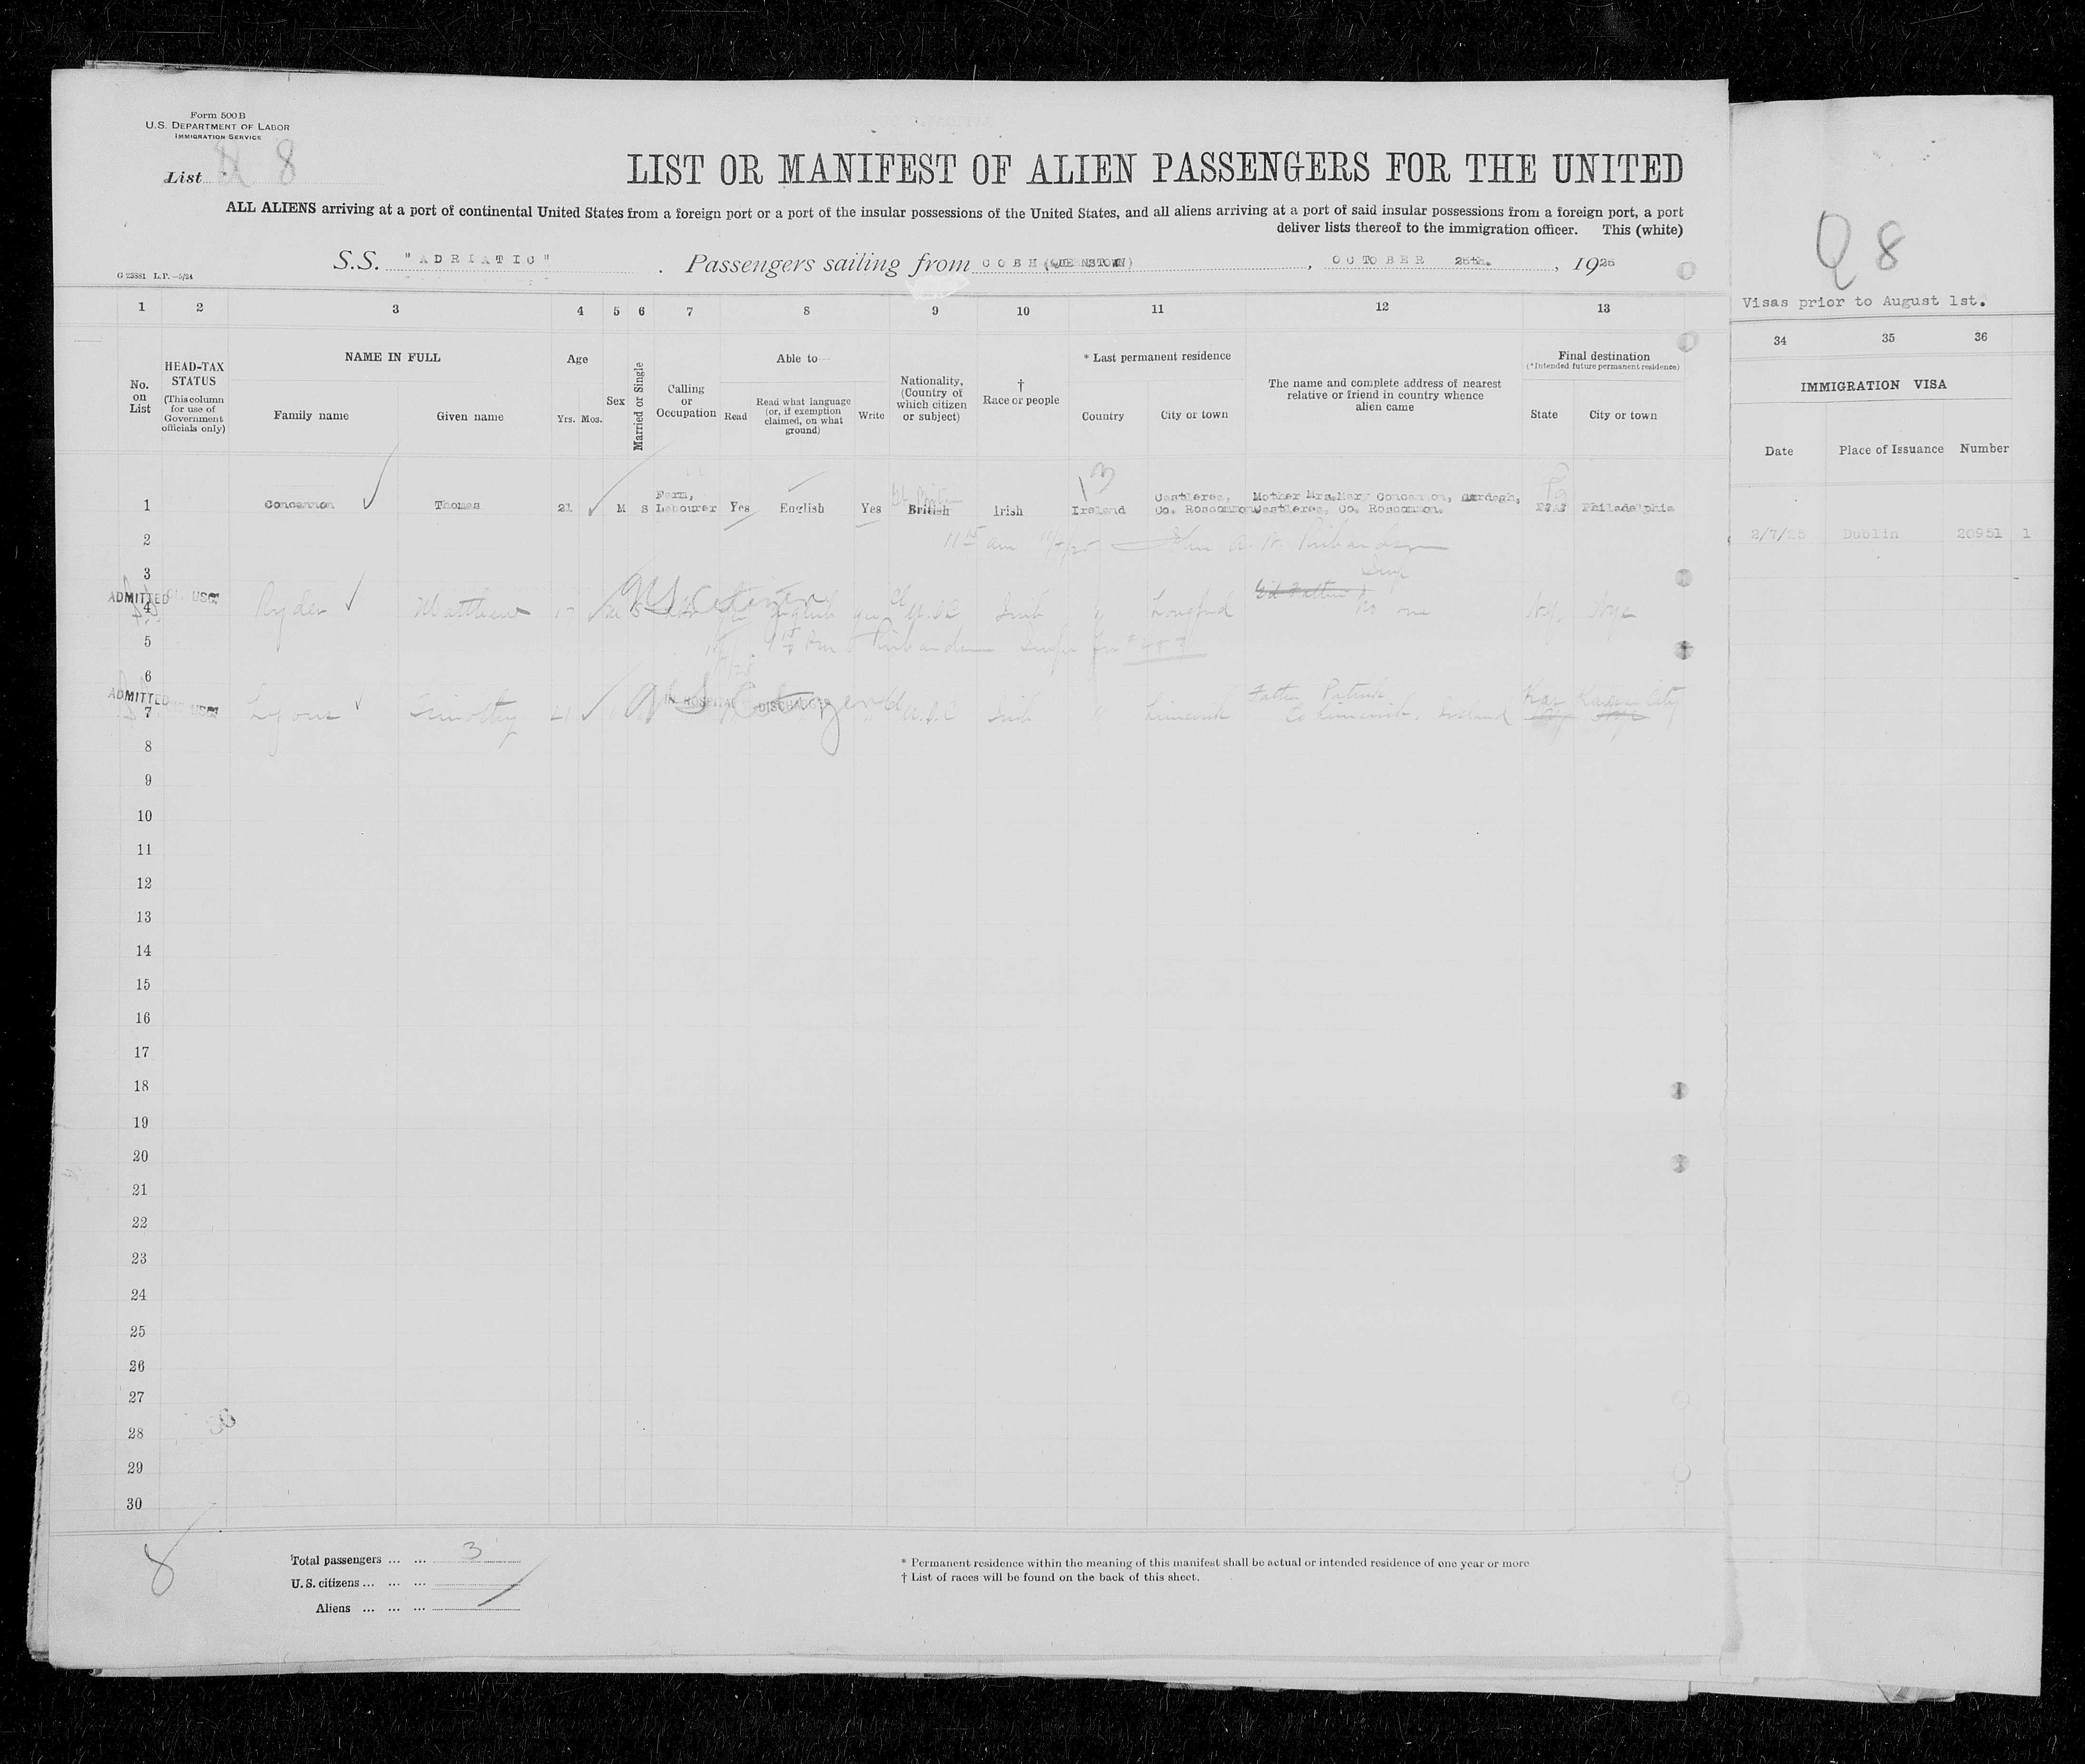 Form 500B
U.S. DEPARTMENT OF LABOR
IMMIGRATION SERVICE
List 8
LIST OR MANIFEST OF ALIEN PASSENGERS FOR THE UNITED
ALL ALIENS arriving at a port of continental United States from a foreign port or a port of the insular possessions of the United States, and all aliens arriving at a port of said insular possessions from a foreign port, a port
deliver lists thereof to the immigration officer. This (white)
S.S. "ADRIATIC" . Passengers sailing from COBH (QUEENSTOWN) , OCTOBER 25th. , 1925
G 23881 L.P.—5/24
Q8
Visas prior to August 1st.
1 2 3 4 5 6 7 8 9 10 11 12 13
34 35 36
No. on List
HEAD-TAX STATUS
(This column for use of Government officials only)
NAME IN FULL
Family name Given name
Age
Yrs. Mos.
Sex
Married or Single
Calling or Occupation
Able to—
Read
Read what language (or, if exemption claimed, on what ground)
Write
Nationality, (Country of which citizen or subject)
†
Race or people
* Last permanent residence
Country City or town
The name and complete address of nearest relative or friend in country whence alien came
Final destination
(*Intended future permanent residence)
State City or town
IMMIGRATION VISA
Date Place of Issuance Number
1 Concannon Thomas 21 M S Farm, Labourer Yes English Yes British Irish Ireland Castlerea, Co. Roscommon Mother Mrs. Mary Concannon, Cardagh, Castlerea, Co. Roscommon. Philadelphia
2 11 15 am
2/7/25 Dublin 20951 1
3
ADMITTED USC
4 Ryder Matthew 17 M S US citizen English U.S.C Irish Longford no one NY. NYC
5
6
ADMITTED USC
7 Lyons Timothy 21 US Citizen IN HOSPITAL DISCHARGED U.S.C Irish Limerick Father Patrick Co Limerick, Ireland Kan Kansas City
8
9
10
11
12
13
14
15
16
17
18
19
20
21
22
23
24
25
26
27
28
29
30
8
Total passengers ... ... 3
U.S. citizens ... ... ...
Aliens ... ... ...
* Permanent residence within the meaning of this manifest shall be actual or intended residence of one year or more
† List of races will be found on the back of this sheet.